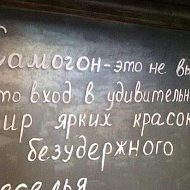 Самогон - это не вы
то вход в удивительн
ир ярких красок
безудержного
еселья